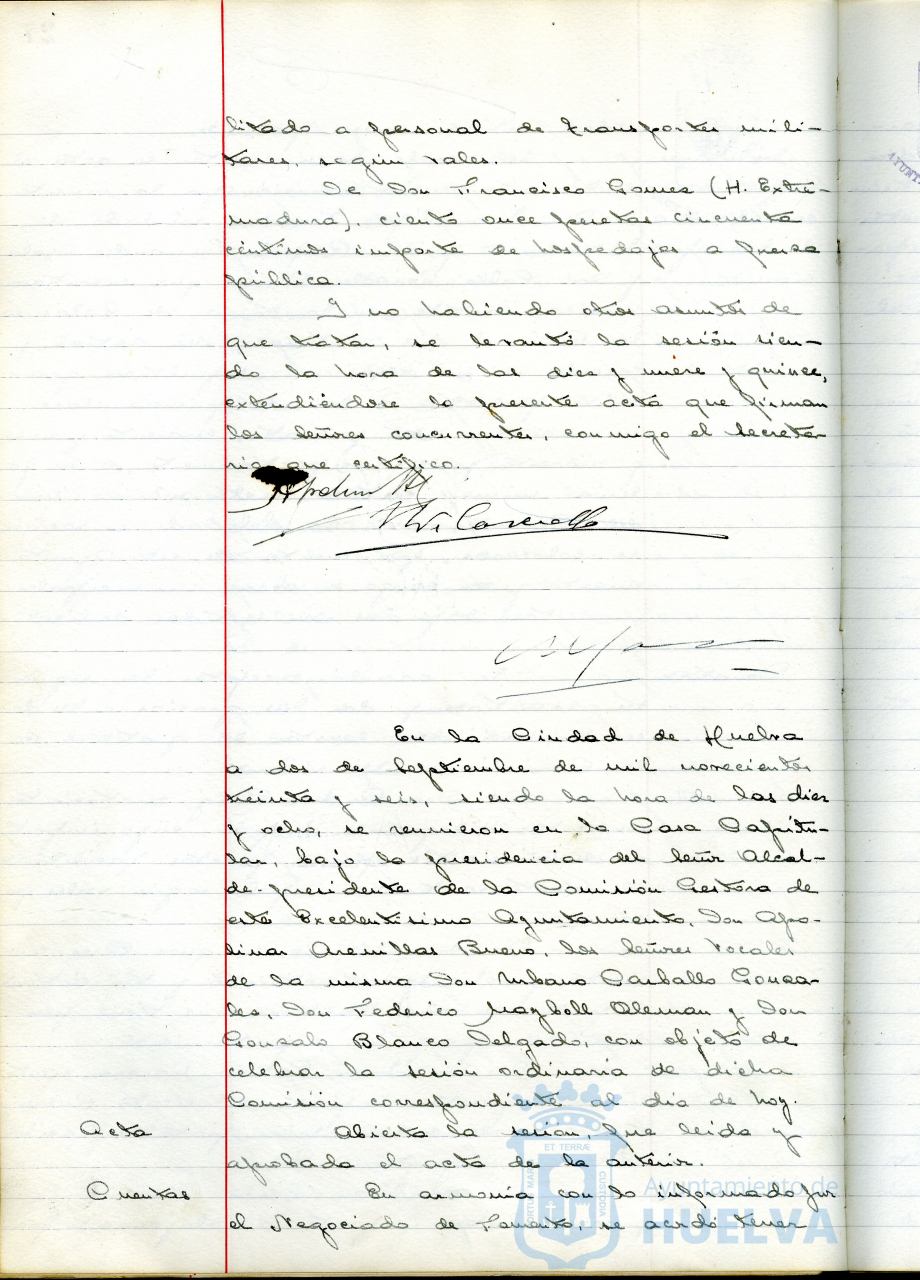 litado a personal de transportes mili-
tares, según vales.
De Don Francisco Gomez (H. Extre-
madura), ciento once pesetas cincuenta
céntimos importe de hospedajes a fuerza
pública.
Y no habiendo otros asuntos de
que tratar, se levantó la sesión sien-
do la hora de las diez y nueve y quince,
extendiéndose la presente acta que firman
los Señores concurrentes, conmigo el Secreta-
rio que certifico.
En la Ciudad de Huelva
a dos de Septiembre de mil novecientos
treinta y seis, siendo la hora de las diez
y ocho, se reunieron en la Casa Capitu-
lar, bajo la presidencia del Señor Alcal-
de-presidente de la Comisión Gestora de
este Excelentísimo Ayuntamiento, Don Apo-
linar Arenillas Bueno, los Señores Vocales
de la misma Don Urbano Carballo Gonza-
les, Don Federico Mayboll Aleman y Don
Gonzalo Blanco Delgado, con objeto de
celebrar la sesión ordinaria de dicha
Comisión correspondiente al dia de hoy.
Acta Abierta la sesión, fue leida y
aprobada el acta de la anterior.
Cuentas En armonía con lo informado por
el Negociado de Fomento, se acordó tener
ET TERRÆ
PORTUS MARIS
CUSTODIA
Ayuntamiento de
HUELVA